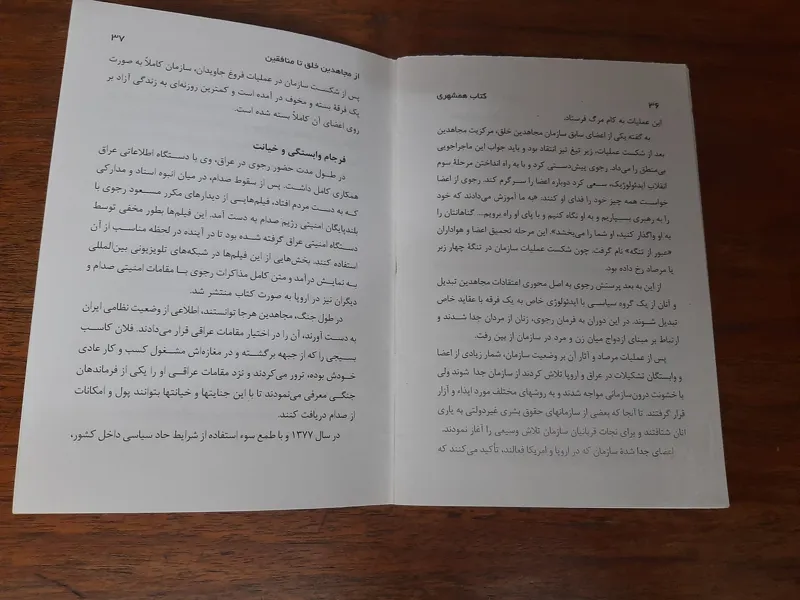 ۳۶
کتاب همشهری
این عملیات به کام مرگ فرستاد.
به گفته یکی از اعضای سابق سازمان مجاهدین خلق، مرکزیت مجاهدین
بعد از شکست عملیات، زیر تیغ تیز انتقاد بود و باید جواب این ماجراجویی
بی‌منطق را می‌داد. رجوی پیش‌دستی کرد و با به راه انداختن مرحلهٔ سوم
انقلاب ایدئولوژیک، سـعی کرد دوباره اعضا را سـرگرم کند. رجوی از اعضا
خواست همه چیز خود را فدای او کنند. «به ما آموزش می‌دادند که خود
را به رهبری بسـپاریم و به او نگاه کنیم و با پای او راه برویم... گناهانتان را
به او واگذار کنید، او شما را می‌بخشد». این مرحله تحمیق اعضا و هواداران
«عبور از تنگه» نام گرفت. چون شکست عملیات سازمان در تنگهٔ چهار زبر
یا مرصاد رخ داده بود.
از این به بعد پرستش رجوی به اصل محوری اعتقادات مجاهدین تبدیل
و آنان از یک گروه سیاسی با ایدئولوژی خاص به یک فرقه با عقاید خاص
تبدیل شـوند. در این دوران به فرمان رجوی، زنان از مردان جدا شـدند و
ارتباط بر مبنای ازدواج میان زن و مرد در سازمان از بین رفت.
پس از عملیات مرصاد و آثار آن بر وضعیت سازمان، شمار زیادی از اعضا
و وابستگان تشکیلات در عراق و اروپا تلاش کردند از سازمان جدا شوند ولی
با خشونت درون‌سازمانی مواجه شدند و به روشهای مختلف مورد ایذاء و آزار
قرار گرفتند. تا آنجا که بعضی از سازمانهای حقوق بشری غیردولتی به یاری
آنان شتافتند و برای نجات قربانیان سازمان تلاش وسیعی را آغاز نمودند.
اعضای جدا شدهٔ سازمان که در اروپا و امریکا فعالند، تأکید می‌کنند که
از مجاهدین خلق تا منافقین
۳۷
پس از شکست سازمان در عملیات فروغ جاویدان، سازمان کاملاً به صورت
یک فرقهٔ بسته و مخوف در آمده است و کمترین روزنه‌ای به زندگی آزاد بر
روی اعضای آن کاملاً بسته شده است.
فرجام وابستگی و خیانت
در طول مدت حضور رجوی در عراق، وی با دسـتگاه اطلاعاتی عراق
همکاری کامل داشـت. پس از سقوط صدام، در میان انبوه اسناد و مدارکی
کـه به دسـت مردم افتاد، فیلم‌هایـی از دیدارهای مکرر مسـعود رجوی با
بلندپایگان امنیتی رژیم صدام به دست آمد. این فیلم‌ها بطور مخفی توسط
دستگاه امنیتی عراق گرفته شده بود تا در آینده در لحظه مناسـب از آن
استفاده کنند. بخش‌هایی از این فیلم‌ها در شبکه‌های تلویزیونی بین‌المللی
بـه نمایـش درآمد و متن کامل مذاکرات رجوی بـا مقامات امنیتی صدام و
دیگران نیز در اروپا به صورت کتاب منتشر شد.
در طول جنگ، مجاهدین هرجا توانستند، اطلاعی از وضعیت نظامی ایران
به دسـت آورند، آن را در اختیار مقامات عراقی قرار می‌دادند. فلان کاسـب
بسـیجی را که از جبهه برگشـته و در مغازه‌اش مشـغول کسب و کار عادی
خودش بوده، ترور می‌کردند و نزد مقامات عراقـی او را یکی از فرماندهان
جنگـی معرفی می‌نمودند تا با این جنایتها و خیانتها بتوانند پول و امکانات
از صدام دریافت کنند.
در سال ۱۳۷۷ و با طمع سوء استفاده از شرایط حاد سیاسی داخل کشور،